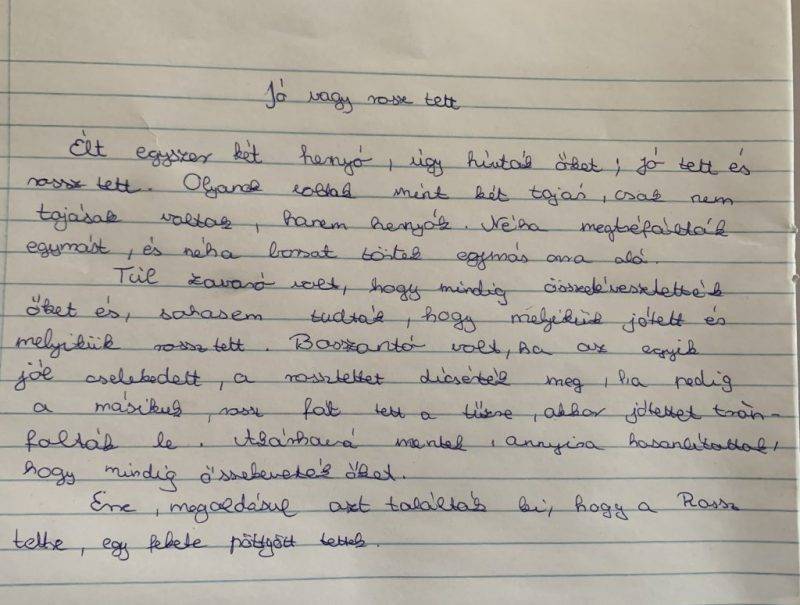 Jó vagy rossz tett
Élt egyszer két hernyó, úgy hívták őket; jó tett és
rossz tett. Olyanok voltak mint két tojás, csak nem
tojások voltak, hanem hernyók. Néha megtréfálták
egymást, és néha borsot törtek egymás orra alá.
Túl zavaró volt, hogy mindig összekeveszttették
őket és, sohasem tudták, hogy melyikük jótett és
melyikük rossz tett. Bosszantó volt, ha az egyik
jól cselekedett, a rossztettet dícsérték meg, ha pedig
a másikuk, rossz fát tett a tűzre, akkor jótettet tron-
folták le. Akárhová mentek, annyira hasonlítottak,
hogy mindig összekeverték őket.
Erre, megoldásul azt találták ki, hogy a Rossz
tettre, egy fekete pöttyött tettek.